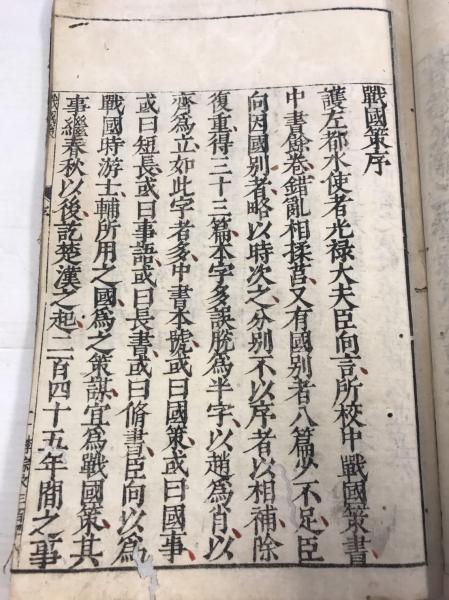 戰國策序
護左都水使者光祿大夫臣向言所校中戰國策書
中書餘卷錯亂相揉莒又有國别者八篇少不足臣
向因國别者略以時次之分别不以序者以相補除
復重得三十三篇本字多誤脫爲半字以趙爲肖以
齊爲立如此字者多中書本號或曰國策或曰國事
或曰短長或曰事語或曰長書或曰脩書臣向以爲
戰國時游士輔所用之國爲之策謀宜爲戰國策其
事繼春秋以後訖楚漢之起二百四十五年間之事